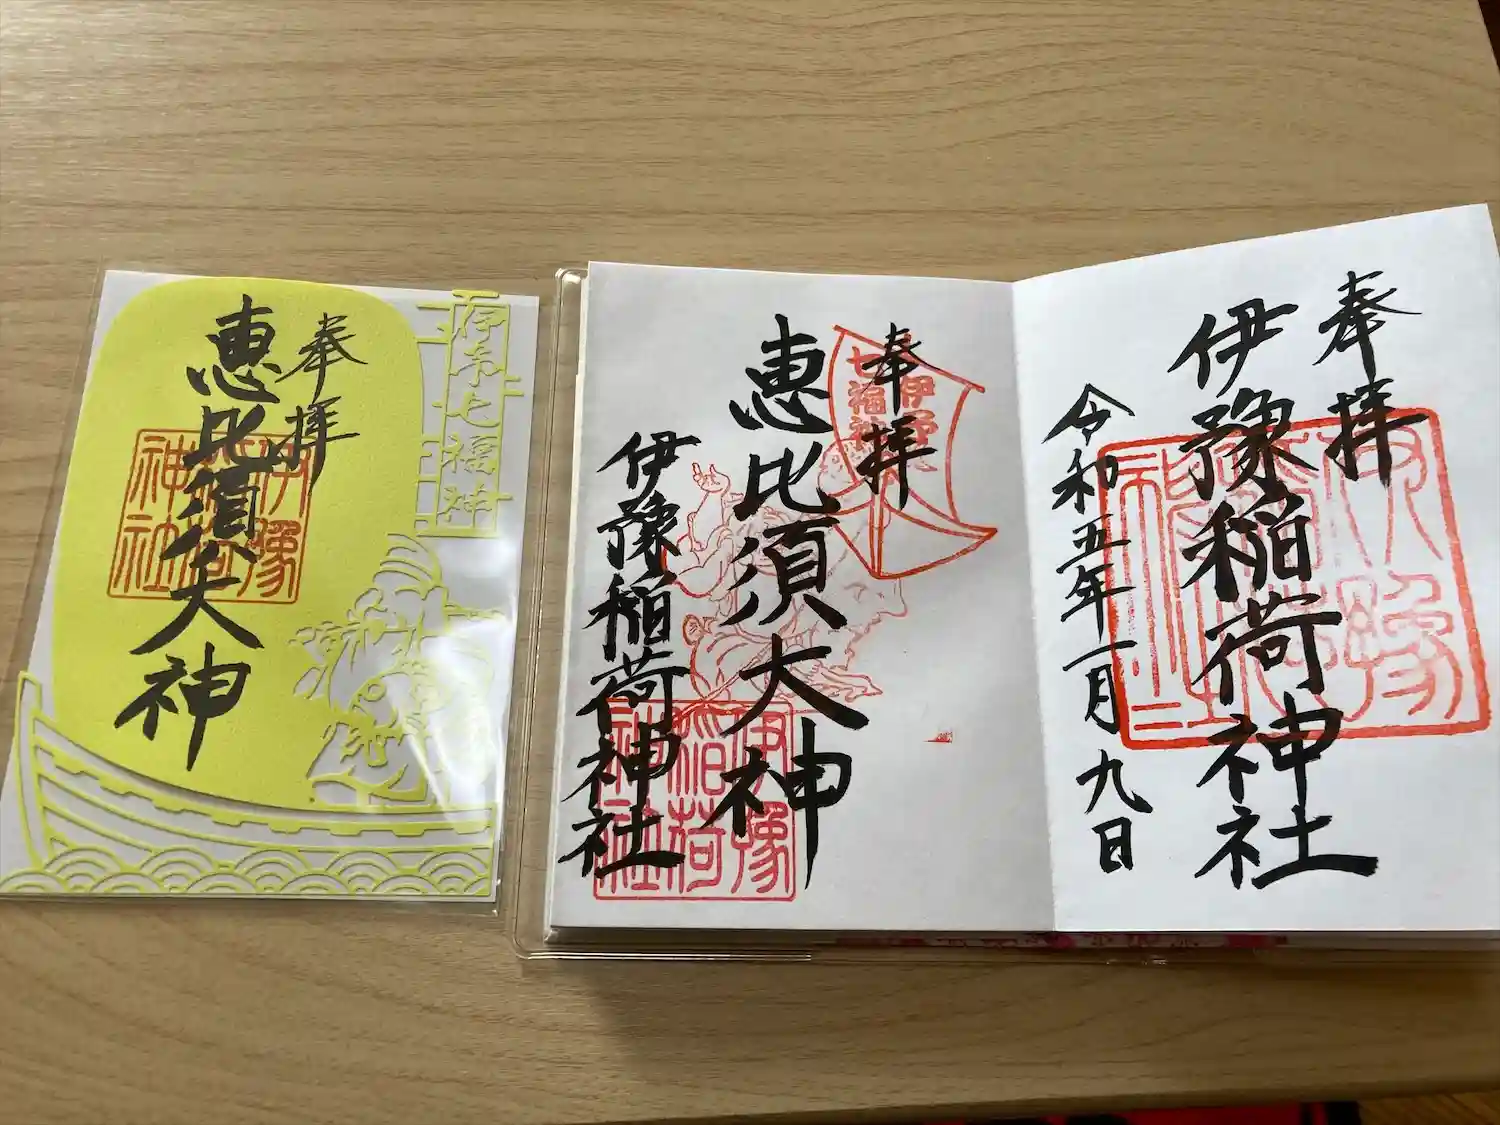 奉拝
伊豫稲荷神社
令和五年一月九日
伊豫
稲荷
神社
奉拝
伊予
七福神
恵比須大神
伊豫稲荷神社
伊豫
稲荷
神社
伊予七福神
奉拝
恵比須大神
伊豫
稲荷
神社